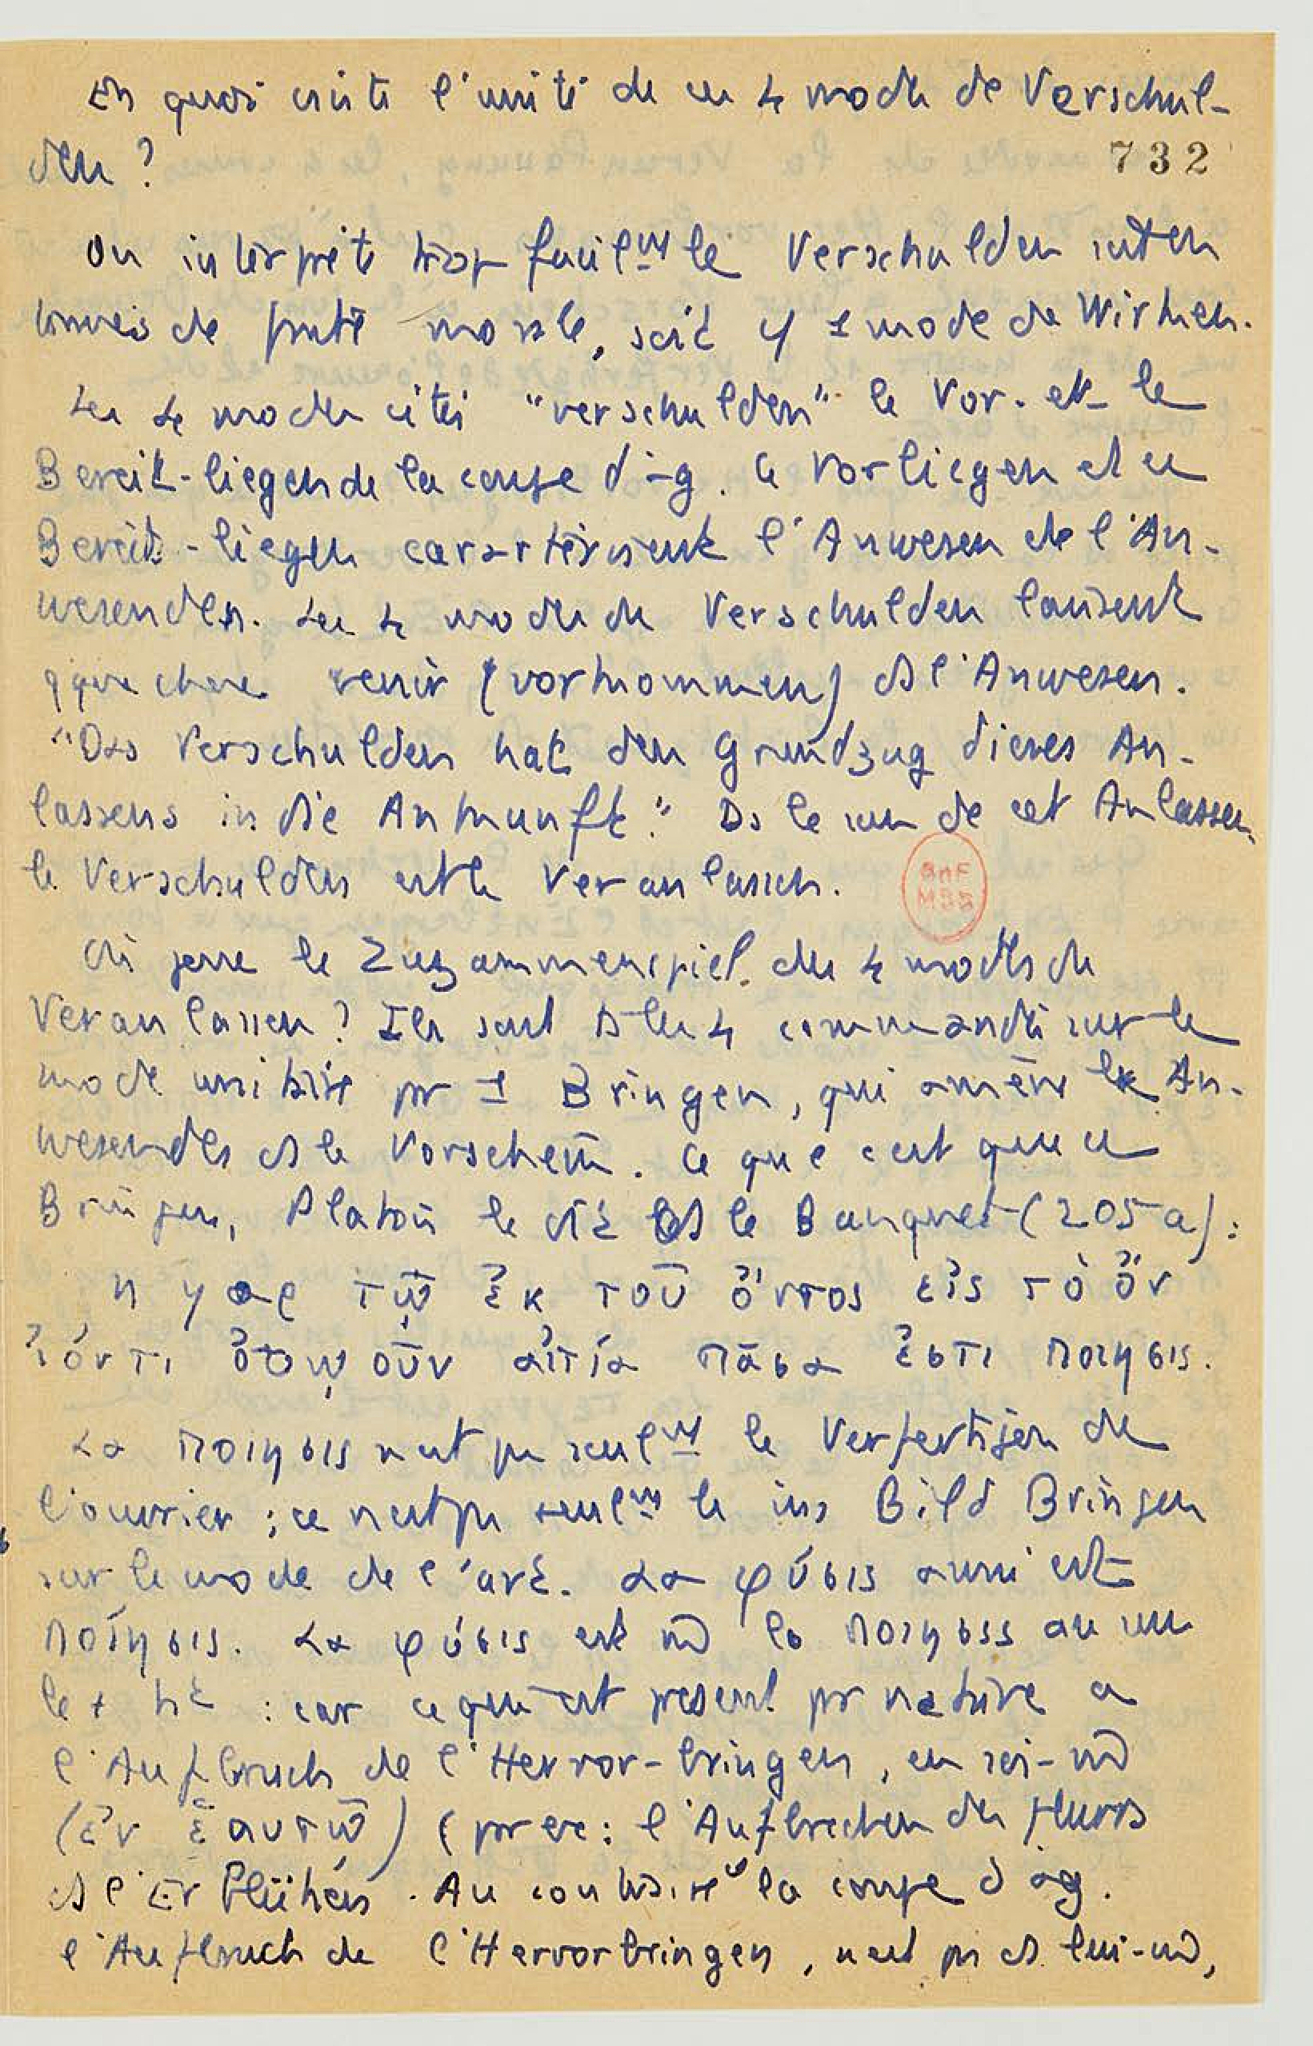 En quoi consiste l'unité de ces 4 modes de Verschul-
den ?
732
On interprète trop facilemt le Verschulden soit en
termes de faute morale, soit cs 1 mode de Wirken.
Les 4 modes cités "verschulden" le Vor- et le
Bereit-liegen de la coupe d'arg. Ce Vorliegen et ce
Bereit-liegen caractérisent l'Anwesen de l'An-
wesendes. Les 4 modes de Verschulden laissent
qque chose venir (vorkommen) ds l'Anwesen.
"Das Verschulden hat den Grundzug dieses An-
lassens in die Ankunft." Ds le sens de cet Anlassen,
le Verschulden est le Veranlassen.
Où joue le Zusammenspiel des 4 modes de
Veranlassen ? Ils sont ts les 4 commandés sur le
mode unitaire pr 1 Bringen, qui amène le An-
wesendes ds le Vorschein. Ce que c'est que ce
Bringen, Platon le dit ds le Banquet (205 a) :
η γαρ τῶ ἐκ τοῦ ὄντος εἰς τὸ ὄν
ἰόντι ὁτῳοῦν αἰτία πᾶσα ἐστι ποιησις.
La ποιησις n'est pas seulemt le Verfertigen de
l'ouvrier ; ce n'est pas seulemt le ins Bild Bringen
sur le mode de l'art. La φύσις aussi est
ποίησις. La φύσις est mm la ποιησις au sens
le + ht : car ce qui est présent par nature a
l'Aufbruch de l'Hervor-bringen, en soi-mm
(ἐν ἑαυτῶ) (par ex : l'Aufbrechen des fleurs
ds l'Erblühen. Au contraire la coupe d'arg.
l'Aufbruch de l'Hervorbringen, n'est pas ds lui-mm,
BnF
MSS